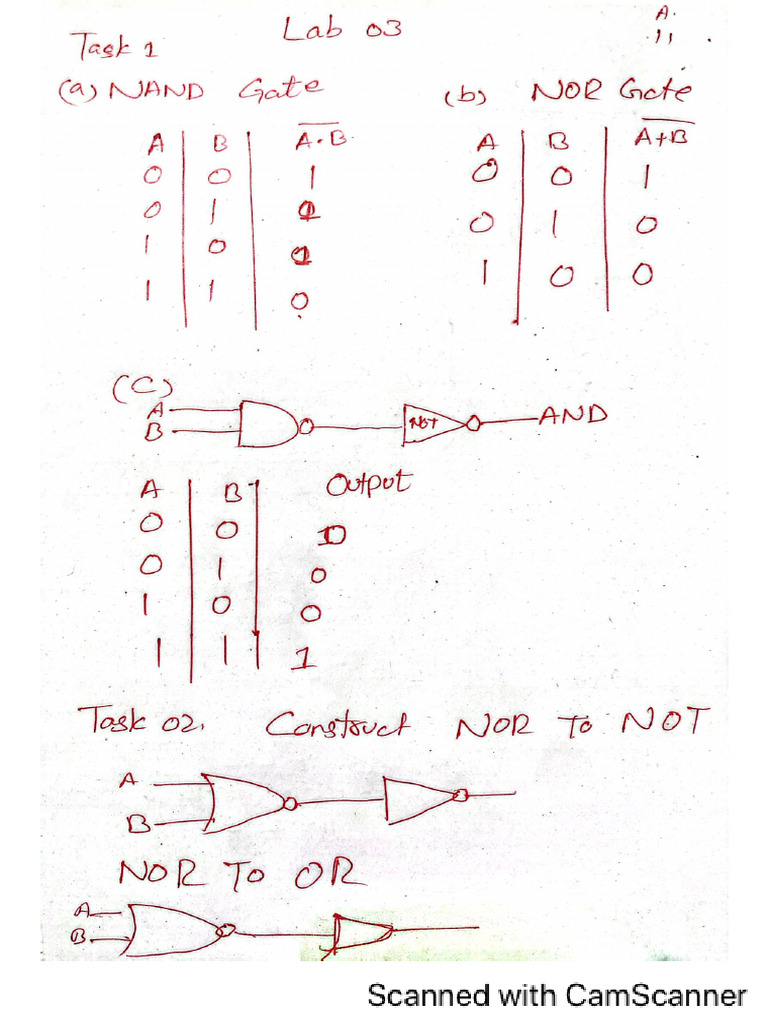 Lab 03
A.
.11 .
Task 1
(a) NAND Gate
A B A.B
0 0 1
0 1 1
1 0 1
1 1 0
(b) NOR Gate
A B A+B
0 0 1
0 1 0
1 0 0
(C)
A
B
NOT
AND
A B Output
0 0 0
0 1 0
1 0 0
1 1 1
Task 02. Construct NOR To NOT
A
B
NOR To OR
A
B
Scanned with CamScanner